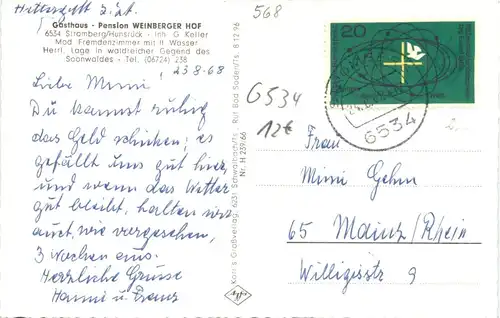 568
Gasthaus - Pension WEINBERGER HOF
6534 Stromberg/Hunsrück - Inh. G. Keller
Mod. Fremdenzimmer mit fl. Wasser
Herrl. Lage in waldreicher Gegend des
Soonwaldes - Tel. (06724) 238
23.8.68
Liebe Mimi!
Du kannst ruhig
das Geld schicken; es
gefällt uns gut hier,
und wenn das Wetter
gut bleibt, halten wir
auch, wie vorgesehen,
3 Wochen aus.
Herzliche Grüsse
Hanni u. Franz
Nr. H 239/66
6534
12€
20
6534
Frau
Mimi Gehm
65 Mainz/Rhein
Willigisstr 9